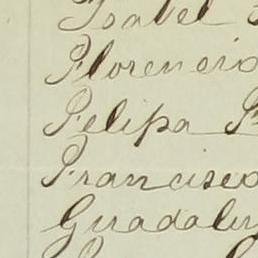 Isabel
Florencio
Felipa
Francisco
Guadalu